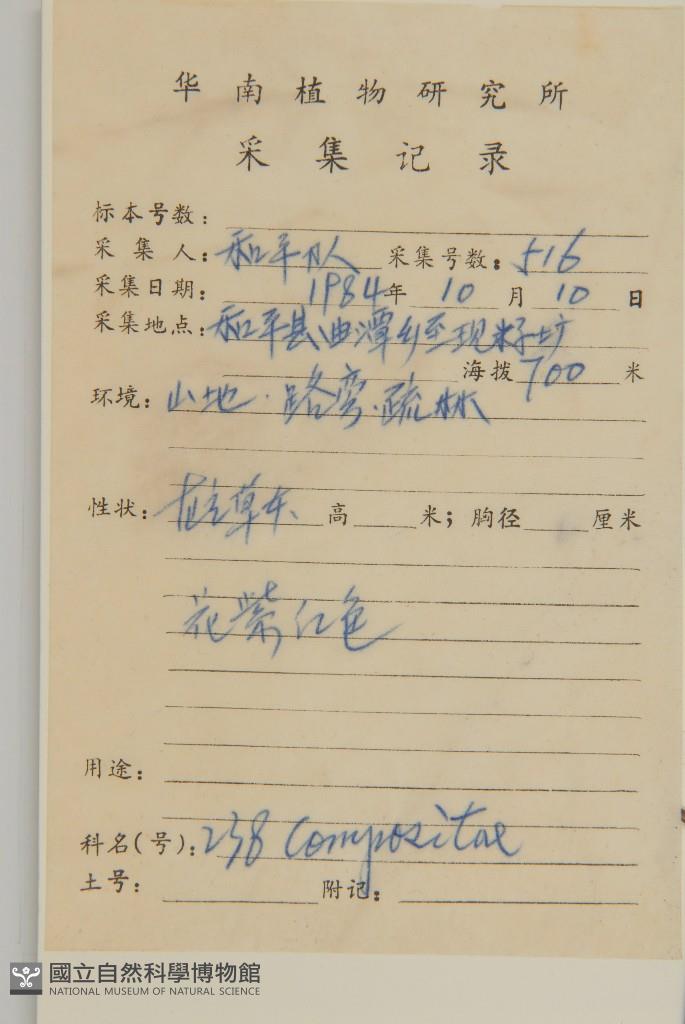 华南植物研究所
采集记录
标本号数:
采集人: 和平队 采集号数: 516
采集日期: 1984年10月10日
采集地点: 和平县曲潭乡至现籽圹
海拨700米
环境: 山地.路旁.疏林
性状: 直立草本 高 米; 胸径 厘米
花紫红色
用途:
科名(号): 238 Compositae
土号: 附记:
國立自然科學博物館
NATIONAL MUSEUM OF NATURAL SCIENCE